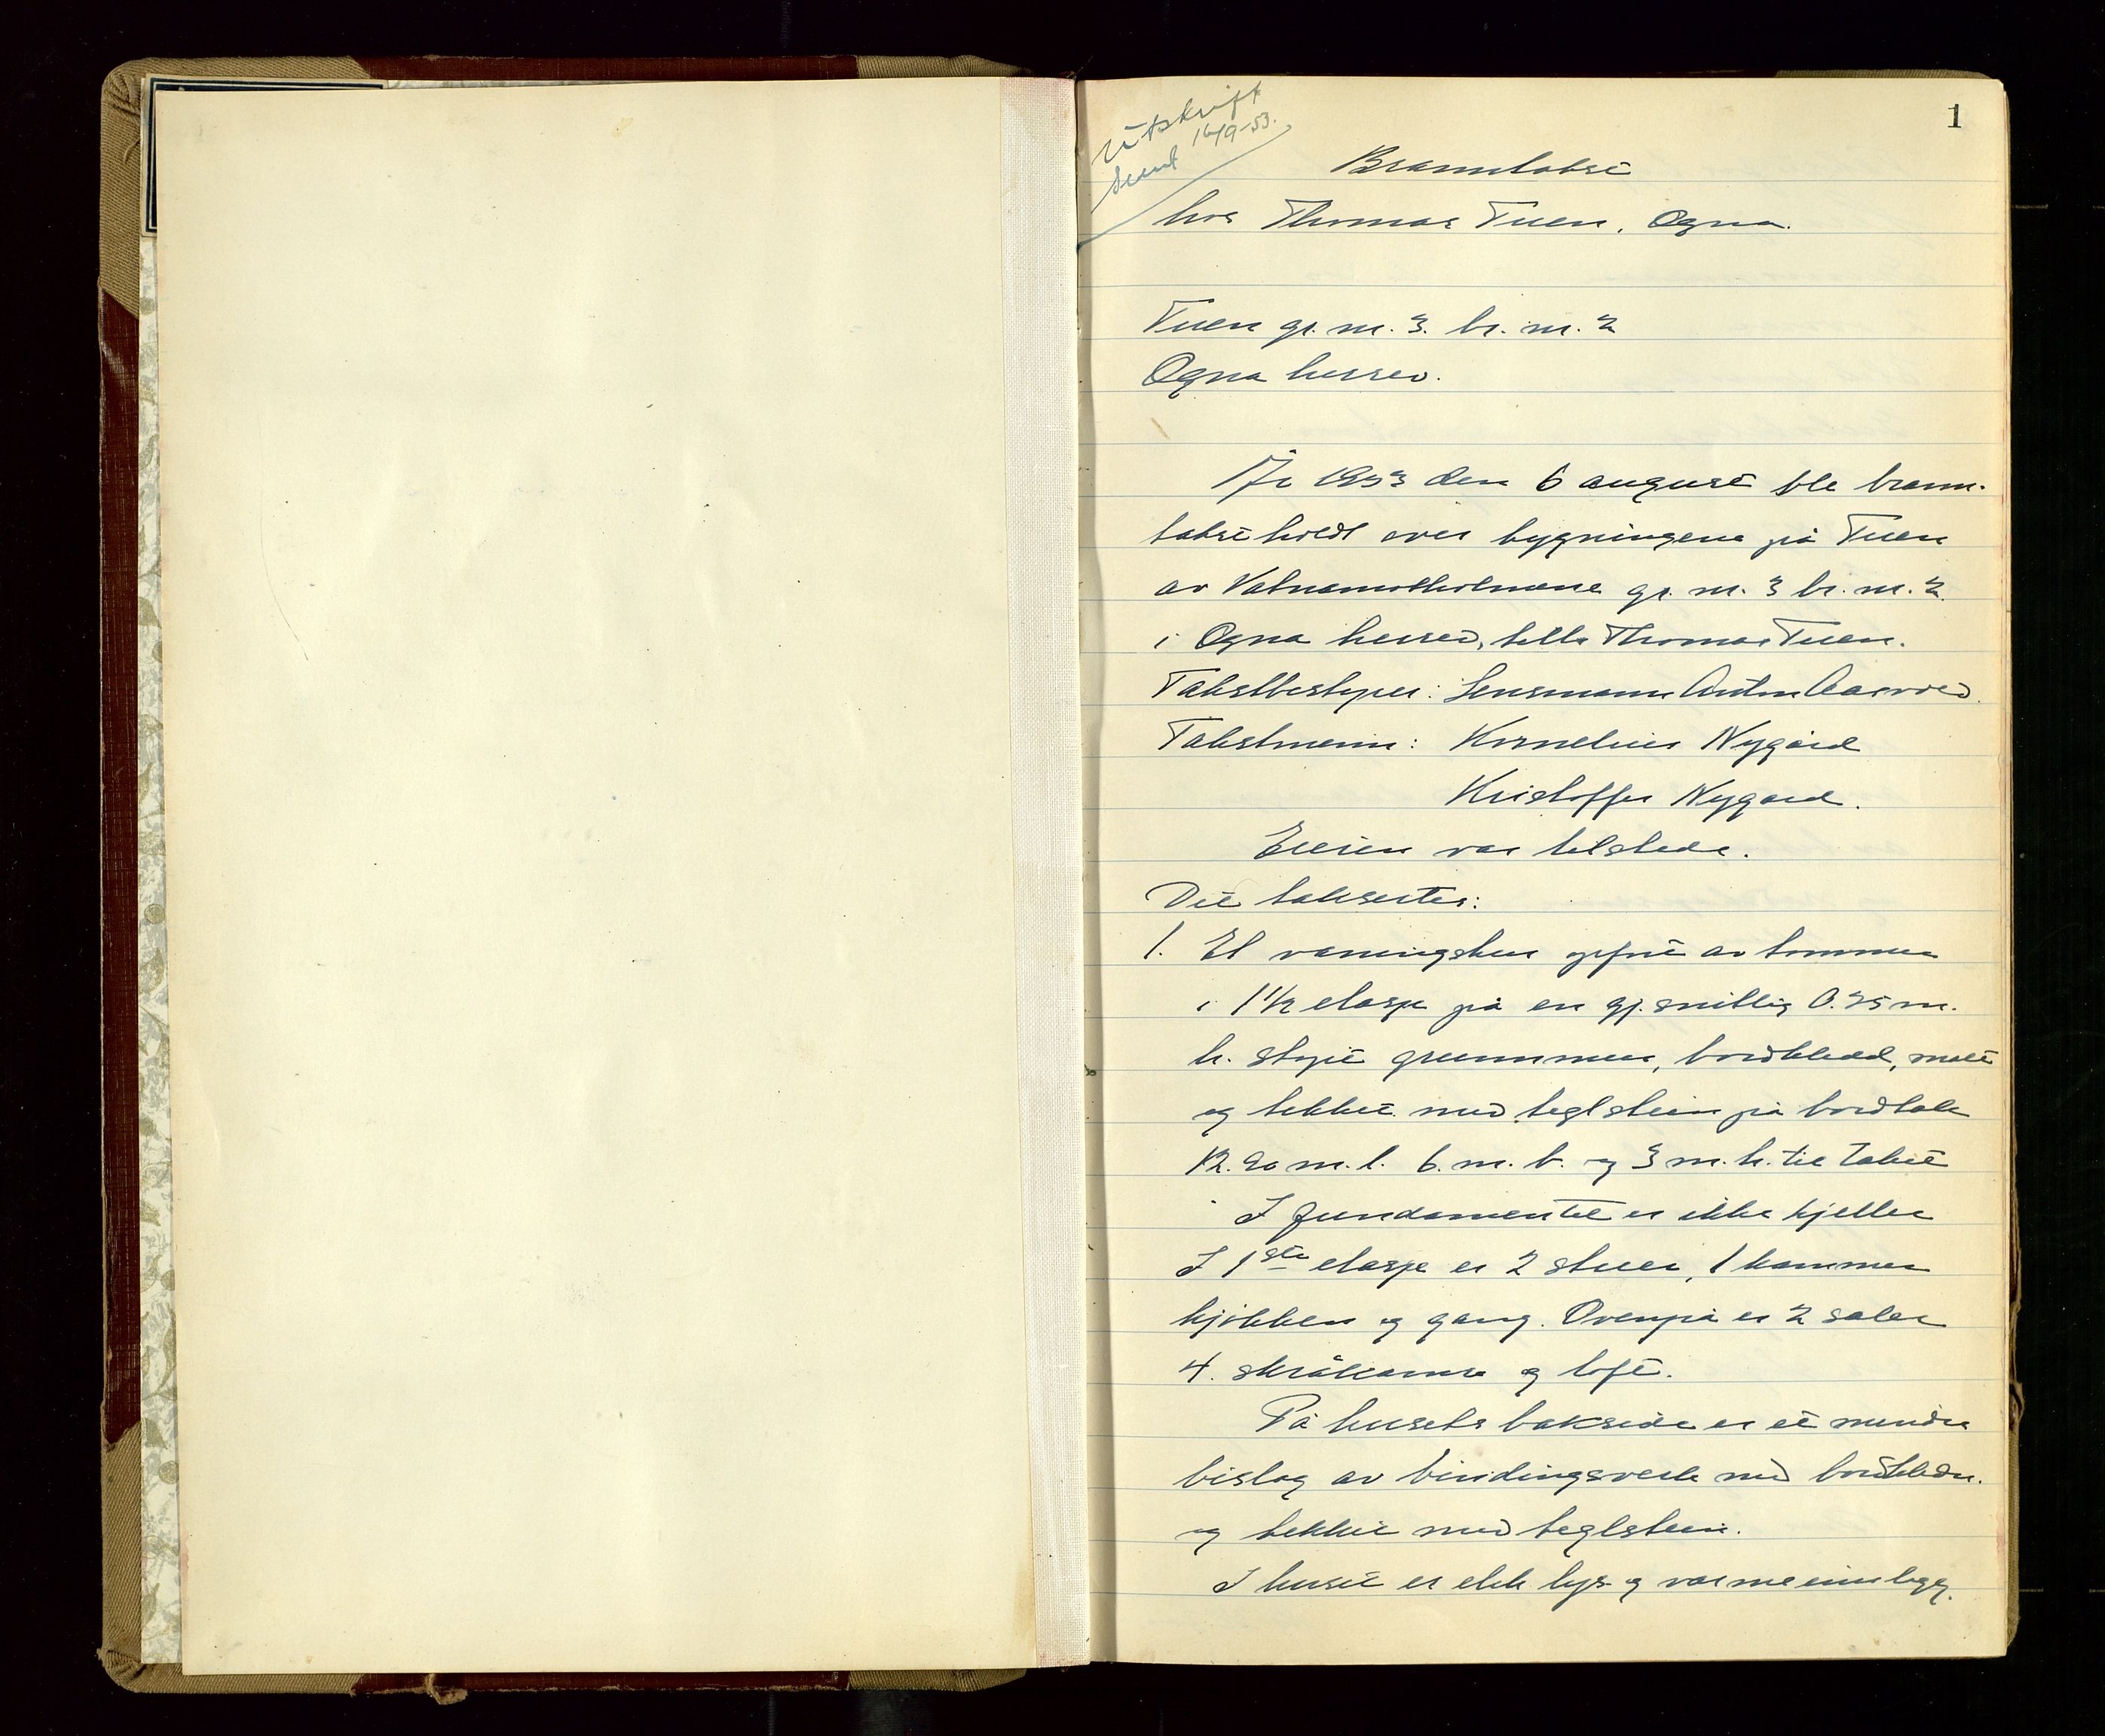 1
Utskrift
sent 16/9-53.
Branntakst
hos Thomas Tuen, Ogna.
Tuen gr. nr. 3. br. nr. 2
Ogna herred.
År 1953 den 6 august ble brann-
takst holdt over bygningene på Tuen
av Vatnamotholmane gr. nr. 3 br. nr. 2.
i Ogna herred, tilh. Thomas Tuen.
Takstbestyrer: Lensmann Anton Aasvold.
Takstmenn: Kornelius Nygård
Kristoffer Nygård.
Eieren var tilstede.
Det taksertes:
1. Et våningshus oppført av tømmer
i 1 1/2 etasje på en gj.snittlig 0.25 m.
h. støpt grunnmur, bordkledd, malt
og tekket med teglstein på bordtak
12.20 m. l. 6. m. b. og 3 m. h. til taket
I fundamentet er ikke kjeller
I 1ste etasje er 2 stuer, 1 kammer
kjøkken og gang. Ovenpå er 2 saler
4. skråkamre og loft.
På husets bakside er et mindre
bislag av bindingsverk med bordkledn.
og tekket med teglstein.
I huset er elek lys og varme innlagt.